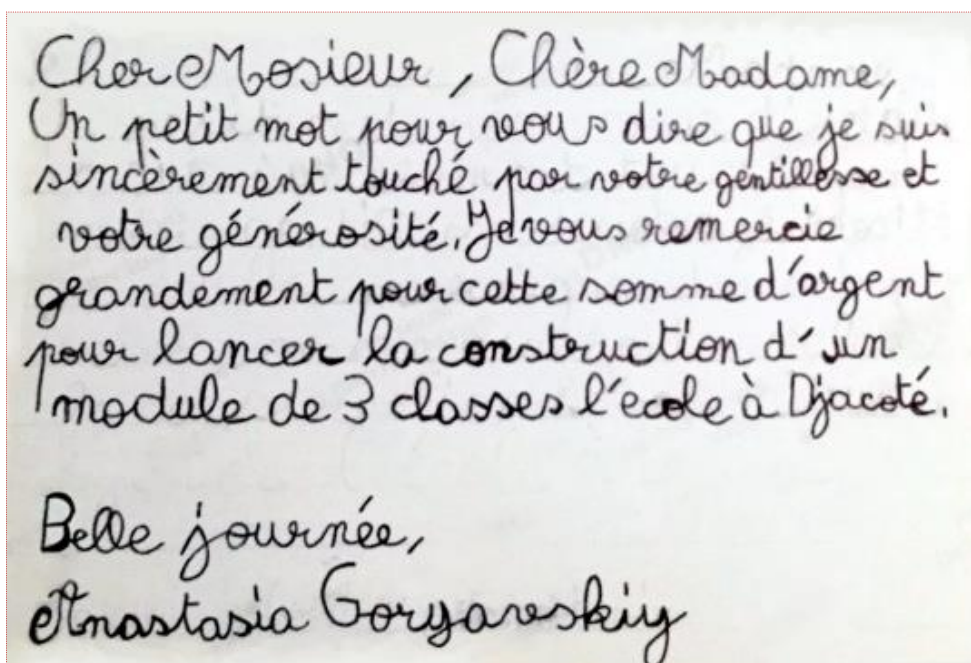 Cher Mosieur, Chère Madame,
Un petit mot pour vous dire que je suis
sincèrement touché par votre gentillesse et
votre générosité. Je vous remercie
grandement pour cette somme d'argent
pour lancer la construction d'un
module de 3 classes l'ecole à Djacoté.
Belle journée,
Anastasia Goryavskiy